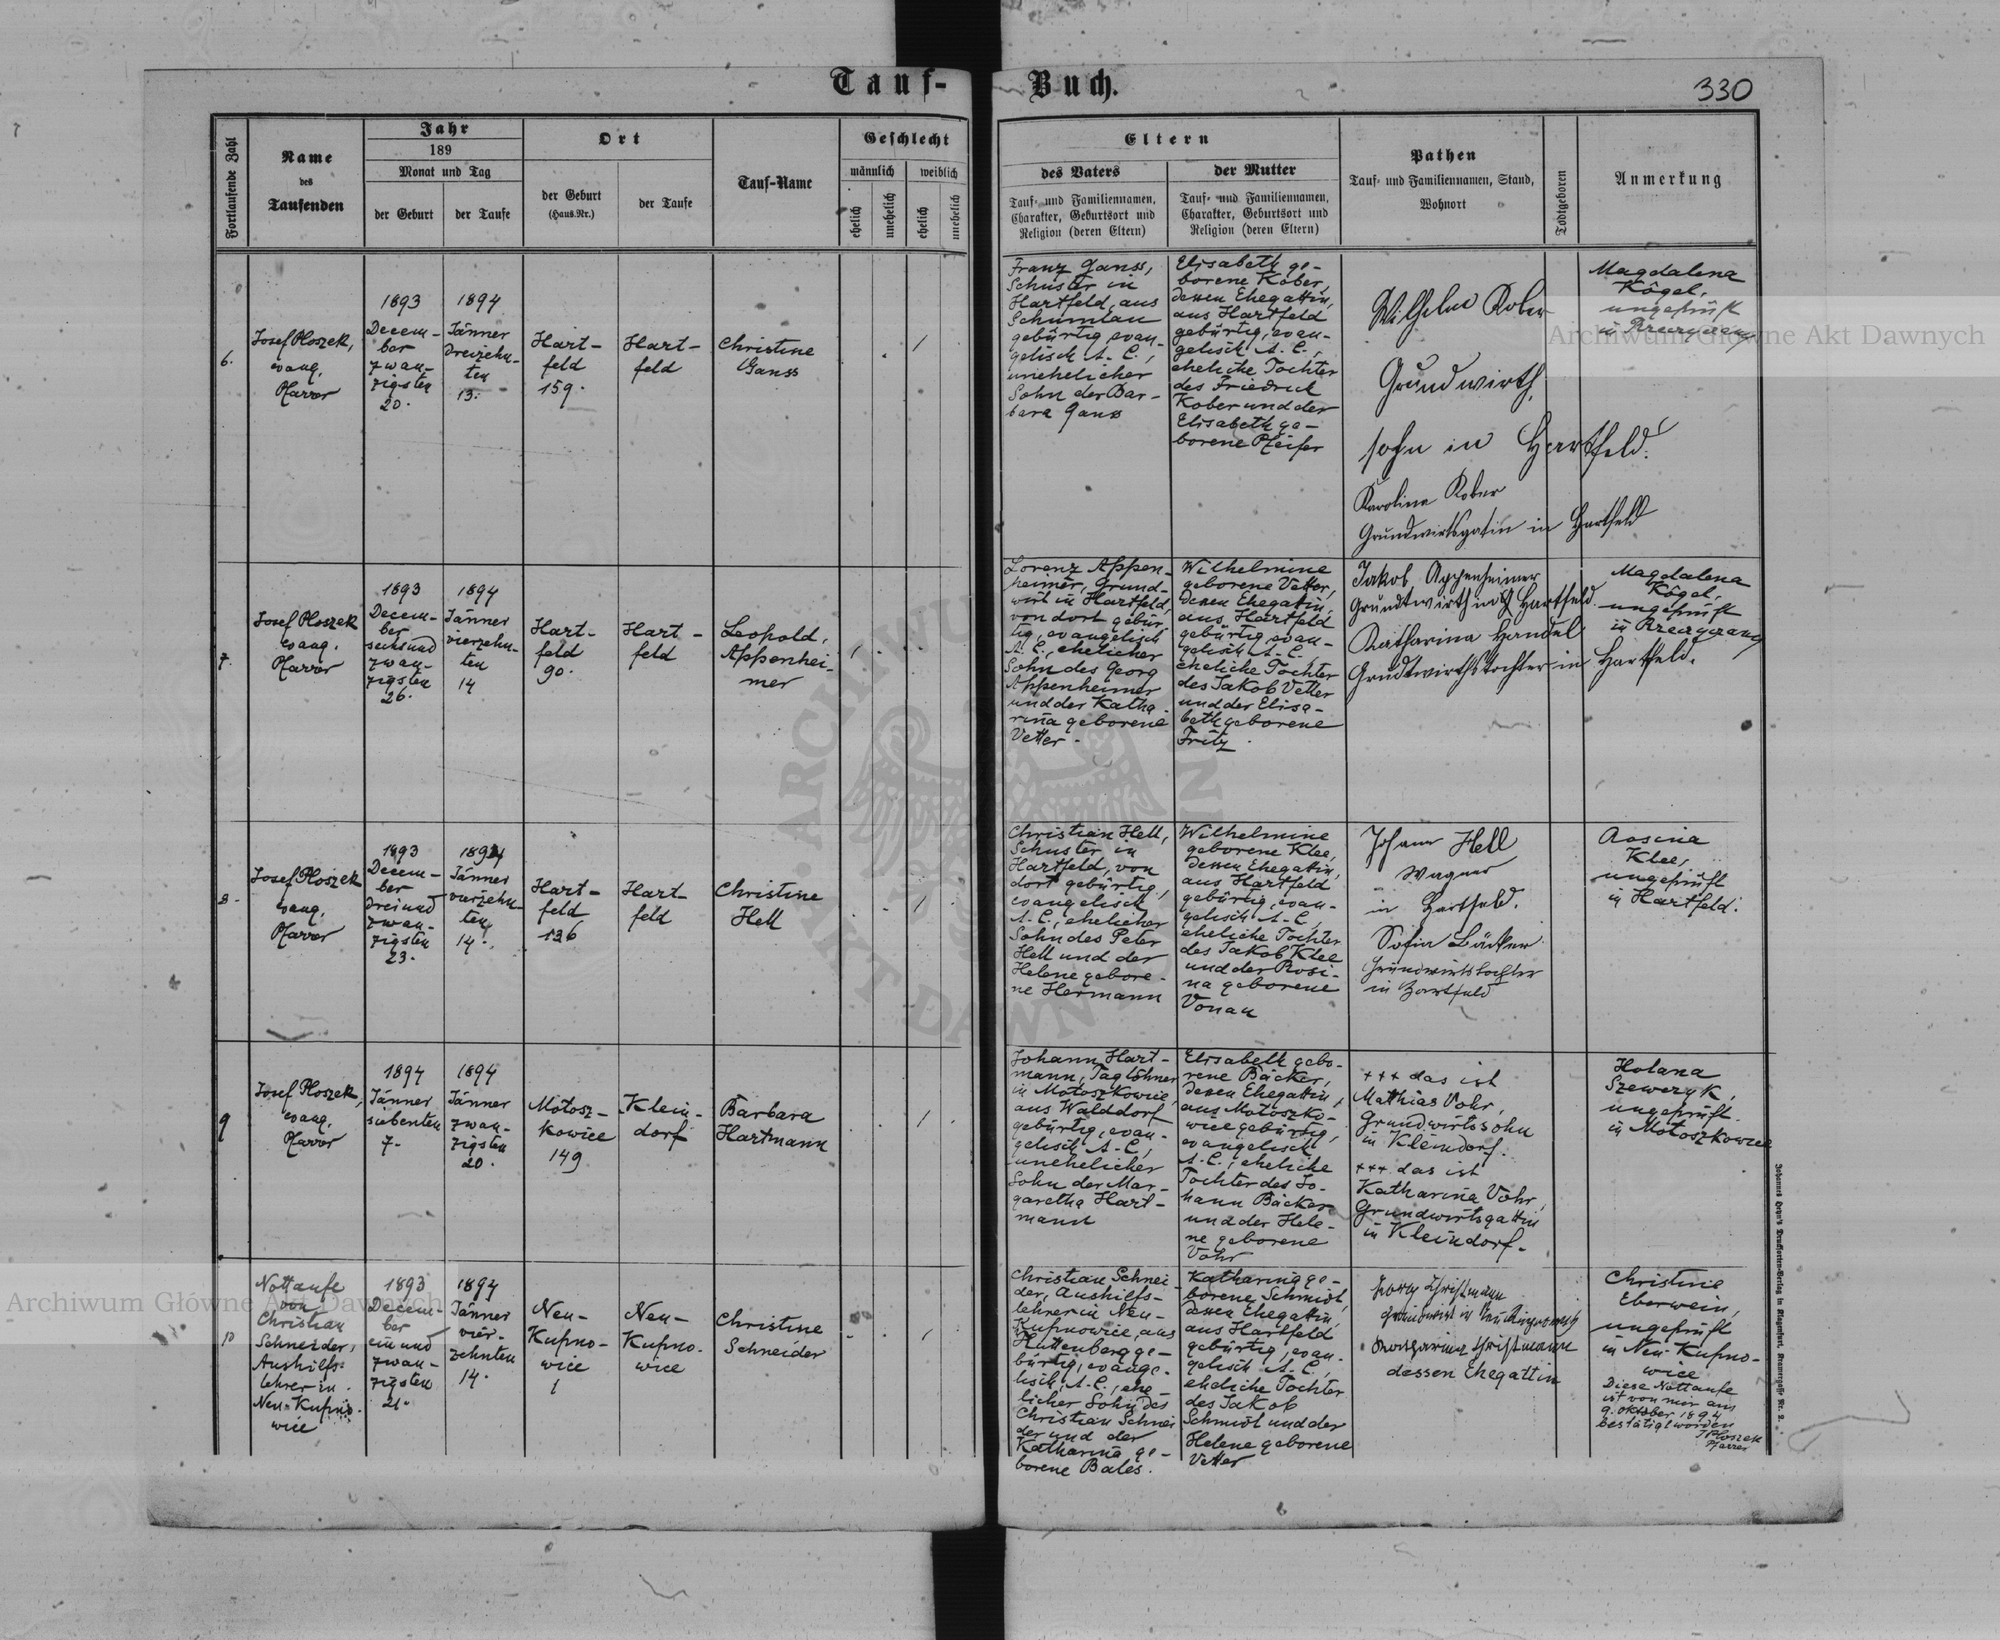 Tauf-Buch.
330
Fortlaufende Zahl
Name
des
Taufenden
Jahr
189
Monat und Tag
der Geburt
der Taufe
Ort
der Geburt
(Haus-Nr.)
der Taufe
Tauf-Name
Geschlecht
männlich
weiblich
ehelich
unehelich
ehelich
unehelich
Eltern
des Vaters
Tauf- und Familiennamen,
Charakter, Geburtsort und
Religion (deren Eltern)
der Mutter
Tauf- und Familiennamen,
Charakter, Geburtsort und
Religion (deren Eltern)
Pathen
Tauf- und Familiennamen, Stand,
Wohnort
Todtgeboren
Anmerkung
6.
Josef Ploszek,
evang.
Pfarrer
1893
Decem-
ber
zwan-
zigsten
20.
1894
Jänner
dreizehn-
ten
13.
Hart-
feld
159.
Hart-
feld
Christine
Ganss
Franz Ganss,
Schuster in
Hartfeld, aus
Schumlau
gebürtig, evan-
gelisch A. C.,
unehelicher
Sohn der Bar-
bara Ganss
Elisabeth ge-
borene Kober,
dessen Ehegattin,
aus Hartfeld
gebürtig, evan-
gelisch A. C.,
eheliche Tochter
des Friedrich
Kober und der
Elisabeth ge-
borene Pfeifer
Wilhelm Kober
Grundwirth,
sohn in Hartfeld.
Karolina Kober
Grundwirtsgatin in Hartfeld
Magdalena
Kögel,
ungeprüft
in
7.
Josef Ploszek
evang.
Pfarrer
1893
Decem-
ber
sechsund
zwan-
zigsten
26.
1894
Jänner
vierzehn-
ten
14
Hart-
feld
90.
Hart-
feld
Leopold,
Appenhei-
mer
Lorenz Appen-
heimer, Grund-
wirt in Hartfeld,
von dort gebür-
tig, evangelisch
A. C., ehelicher
Sohn des Georg
Appenheimer
und der Katha-
rina geborene
Vetter.
Wilhelmine
geborene Vetter,
dessen Ehegattin,
aus Hartfeld
gebürtig, evan-
gelisch A. C.
eheliche Tochter
des Jakob Vetter
und der Elisa-
beth geborene
Fritz.
Jakob Appenheimer
Grundtwirth in Hartfeld.
Katharina Handel
Grudtwirthstochter in Hartfeld.
Magdalena
Kögel,
ungeprüft
in
8.
Josef Ploszek
evang.
Pfarrer
1893
Decem-
ber
dreiund
zwan-
zigsten
23.
1894
Jänner
vierzehn-
ten
14.
Hart-
feld
136
Hart-
feld
Christine
Hell
Christian Hell,
Schuster in
Hartfeld, von
dort gebürtig,
evangelisch
A. C., ehelicher
Sohn des Peter
Hell und der
Helene gebore-
ne Hermann
Wilhelmine
geborene Klee,
dessen Ehegattin,
aus Hartfeld
gebürtig, evan-
gelisch A. C.,
eheliche Tochter
des Jakob Klee
und der Rosi-
na geborene
Vonau
Johann Hell
Wagner
in Hartfeld.
Sofia Bäcker
Grundwirtstochter
in Hartfeld
Rosina
Klee,
ungeprüft
in Hartfeld.
9
Josef Ploszek,
evang.
Pfarrer
1894
Jänner
siebenten
7.
1894
Jänner
zwan-
zigsten
20.
Motosz-
kowice
149
Klein-
dorf
Barbara
Hartmann
Johann Hart-
mann, Taglöhner
in Motoszkowice,
aus Walddorf
gebürtig, evan-
gelisch A. C.,
unehelicher
Sohn der Mar-
garetha Hart-
mann
Elisabeth gebo-
rene Bäcker,
dessen Ehegattin,
aus Motoszko-
wice gebürtig,
evangelisch
A. C., eheliche
Tochter des Jo-
hann Bäcker
und der Hele-
ne geborene
Vohr
+++ das ist
Matthias Vohr,
Grundwirtssohn
in Kleindorf.
+++ das ist
Katharina Vohr,
Grundwirtsgattin
in Kleindorf.
Holana
Szewczyk,
ungeprüft.
in Motoszkowice
10
Nottaufe
von
Christian
Schneider,
Aushilfs-
lehrer in
Neu-Kupno-
wice
1893
Decem-
ber
ein und
zwan-
zigsten
21.
1894
Jänner
vier-
zehnten
14.
Neu-
Kupno-
wice
1
Neu-
Kupno-
wice
Christine
Schneider
Christian Schnei
der, Aushilfs-
lehrer in Neu-
Kupnowice, aus
Huttenberg ge-
bürtig, evange-
lisch A. C., ehe-
licher Sohn des
Christian Schnei
der und der
Katharina ge-
borene Bales.
Katharina ge-
borene Schmidt,
dessen Ehegattin,
aus Hartfeld
gebürtig, evan-
gelisch A. C.,
eheliche Tochter
des Jakob
Schmidt und der
Helene geborene
Vetter
Georg Christmann
Grundwirt in Neu
Christmann
dessen Ehegattin
Christine
Eberwein,
ungeprüft
in Neu-Kupno-
wice
Diese Nottaufe
ist von mir am
9. Oktober 1894
bestätigt worden
J Ploszek
Pfarrer
Archiwum Główne Akt Dawnych
Archiwum Główne Akt Dawnych